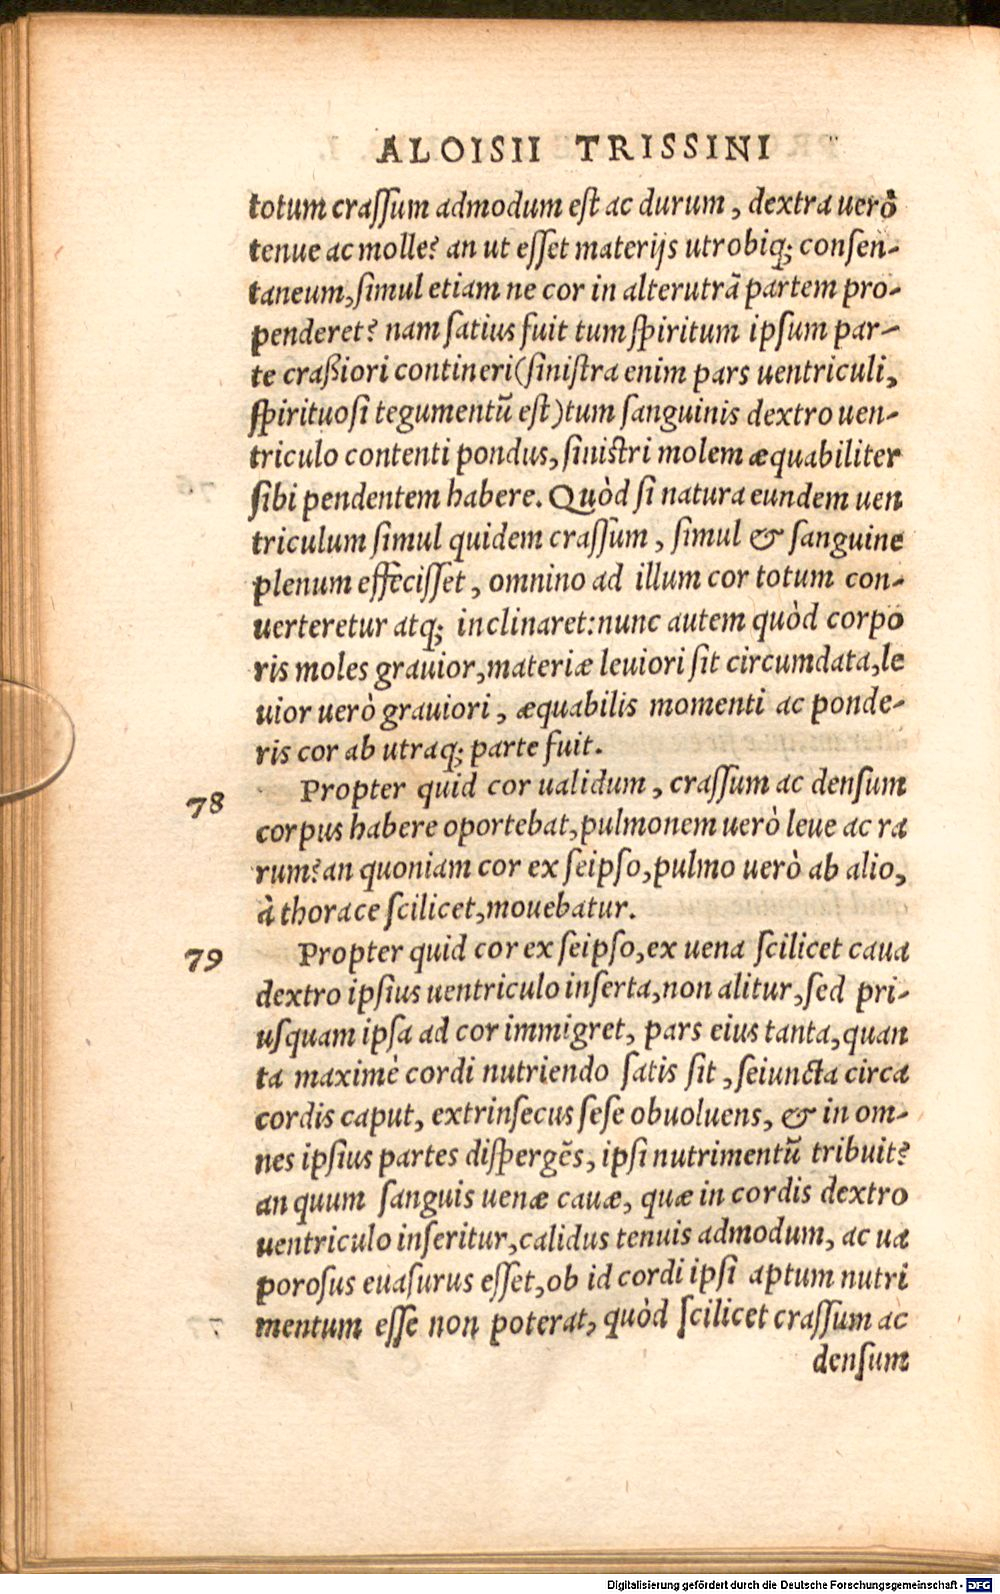 ALOISII TRISSINI
totum craſſum admodum eſt ac durum, dextra uerò
tenue ac molle? an ut eſſet materijs utrobiq; conſen-
taneum, ſimul etiam ne cor in alterutrã partem pro-
penderet? nam ſatius fuit tum ſpiritum ipſum par-
te craßiori contineri (ſiniſtra enim pars uentriculi,
ſpirituoſi tegumentũ eſt) tum ſanguinis dextro uen-
triculo contenti pondus, ſiniſtri molem æquabiliter
ſibi pendentem habere. Quòd ſi natura eundem uen
triculum ſimul quidem craſſum, ſimul & ſanguine
plenum effeciſſet, omnino ad illum cor totum con-
uerteretur atq; inclinaret: nunc autem quòd corpo
ris moles grauior, materiæ leuiori ſit circumdata, le
uior uerò grauiori, æquabilis momenti ac ponde-
ris cor ab utraq; parte fuit.
78 Propter quid cor ualidum, craſſum ac denſum
corpus habere oportebat, pulmonem uerò leue ac ra
rum? an quoniam cor ex ſeipſo, pulmo uerò ab alio,
à thorace ſcilicet, mouebatur.
79 Propter quid cor ex ſeipſo, ex uena ſcilicet caua
dextro ipſius uentriculo inſerta, non alitur, ſed pri-
uſquam ipſa ad cor immigret, pars eius tanta, quan
ta maximè cordi nutriendo ſatis ſit, ſeiuncta circa
cordis caput, extrinſecus ſeſe obuoluens, & in om-
nes ipſius partes diſpergẽs, ipſi nutrimentũ tribuit?
an quum ſanguis uenæ cauæ, quæ in cordis dextro
uentriculo inſeritur, calidus tenuis admodum, ac ua
poroſus euaſurus eſſet, ob id cordi ipſi aptum nutri
mentum eſſe non poterat, quòd ſcilicet craſſum ac
denſum
Digitalisierung gefördert durch die Deutsche Forschungsgemeinschaft - DFG